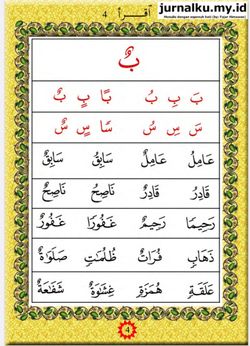 jurnalku.my.id
Menulis dengan sepenuh hati (by: Fajar Himawan)
أقرأ 4
بٌ
بَ بِ بُ بًا بٍ بٌ
سَ سِ سُ سًا سٍ سٌ
عَامِلُ عَامِلٌ سَابِقُ سَابِقٌ
قَادِرُ قَادِرٌ نَاصِحُ نَاصِحٌ
رَحِيمًا رَحِيمٌ غَفُورًا غَفُورٌ
ذَهَابٍ فُرَاتٌ ظُلُمَاتٍ صَلَوَاةٌ
عَلَقَةٍ هُمَزَةٍ غِشَاوَةٌ شَفَاعَةٌ
4